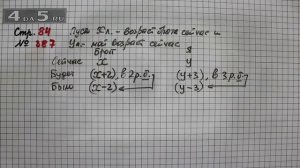 4 da 5 . ru
Стр. 84 Пусть x л. - возраст брата сейчас и
№ 387 y л. - мой возраст сейчас
Брат Я
Сейчас x y
Будет (x+2), в 2 р. б. (y+3), в 3 р. б.
Было (x-2) (y-3)